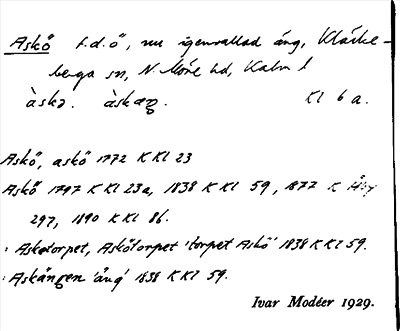 Askö f.d. ö, nu igenvallad äng, Kläcke-
berga sn, N Möre hd, Kalm l
àskə. àskøn. Kl 6 a.
Askö, askö 1772 K Kl 23
Askö 1797 K Kl 23a, 1838 K Kl 59, 1877 K
297, 1890 K Kl 86.
: Askotorpet, Askötorpet 'torpet Askö' 1838 K Kl 59.
: Askängen 'äng' 1838 K Kl 59.
Ivar Modéer 1929.